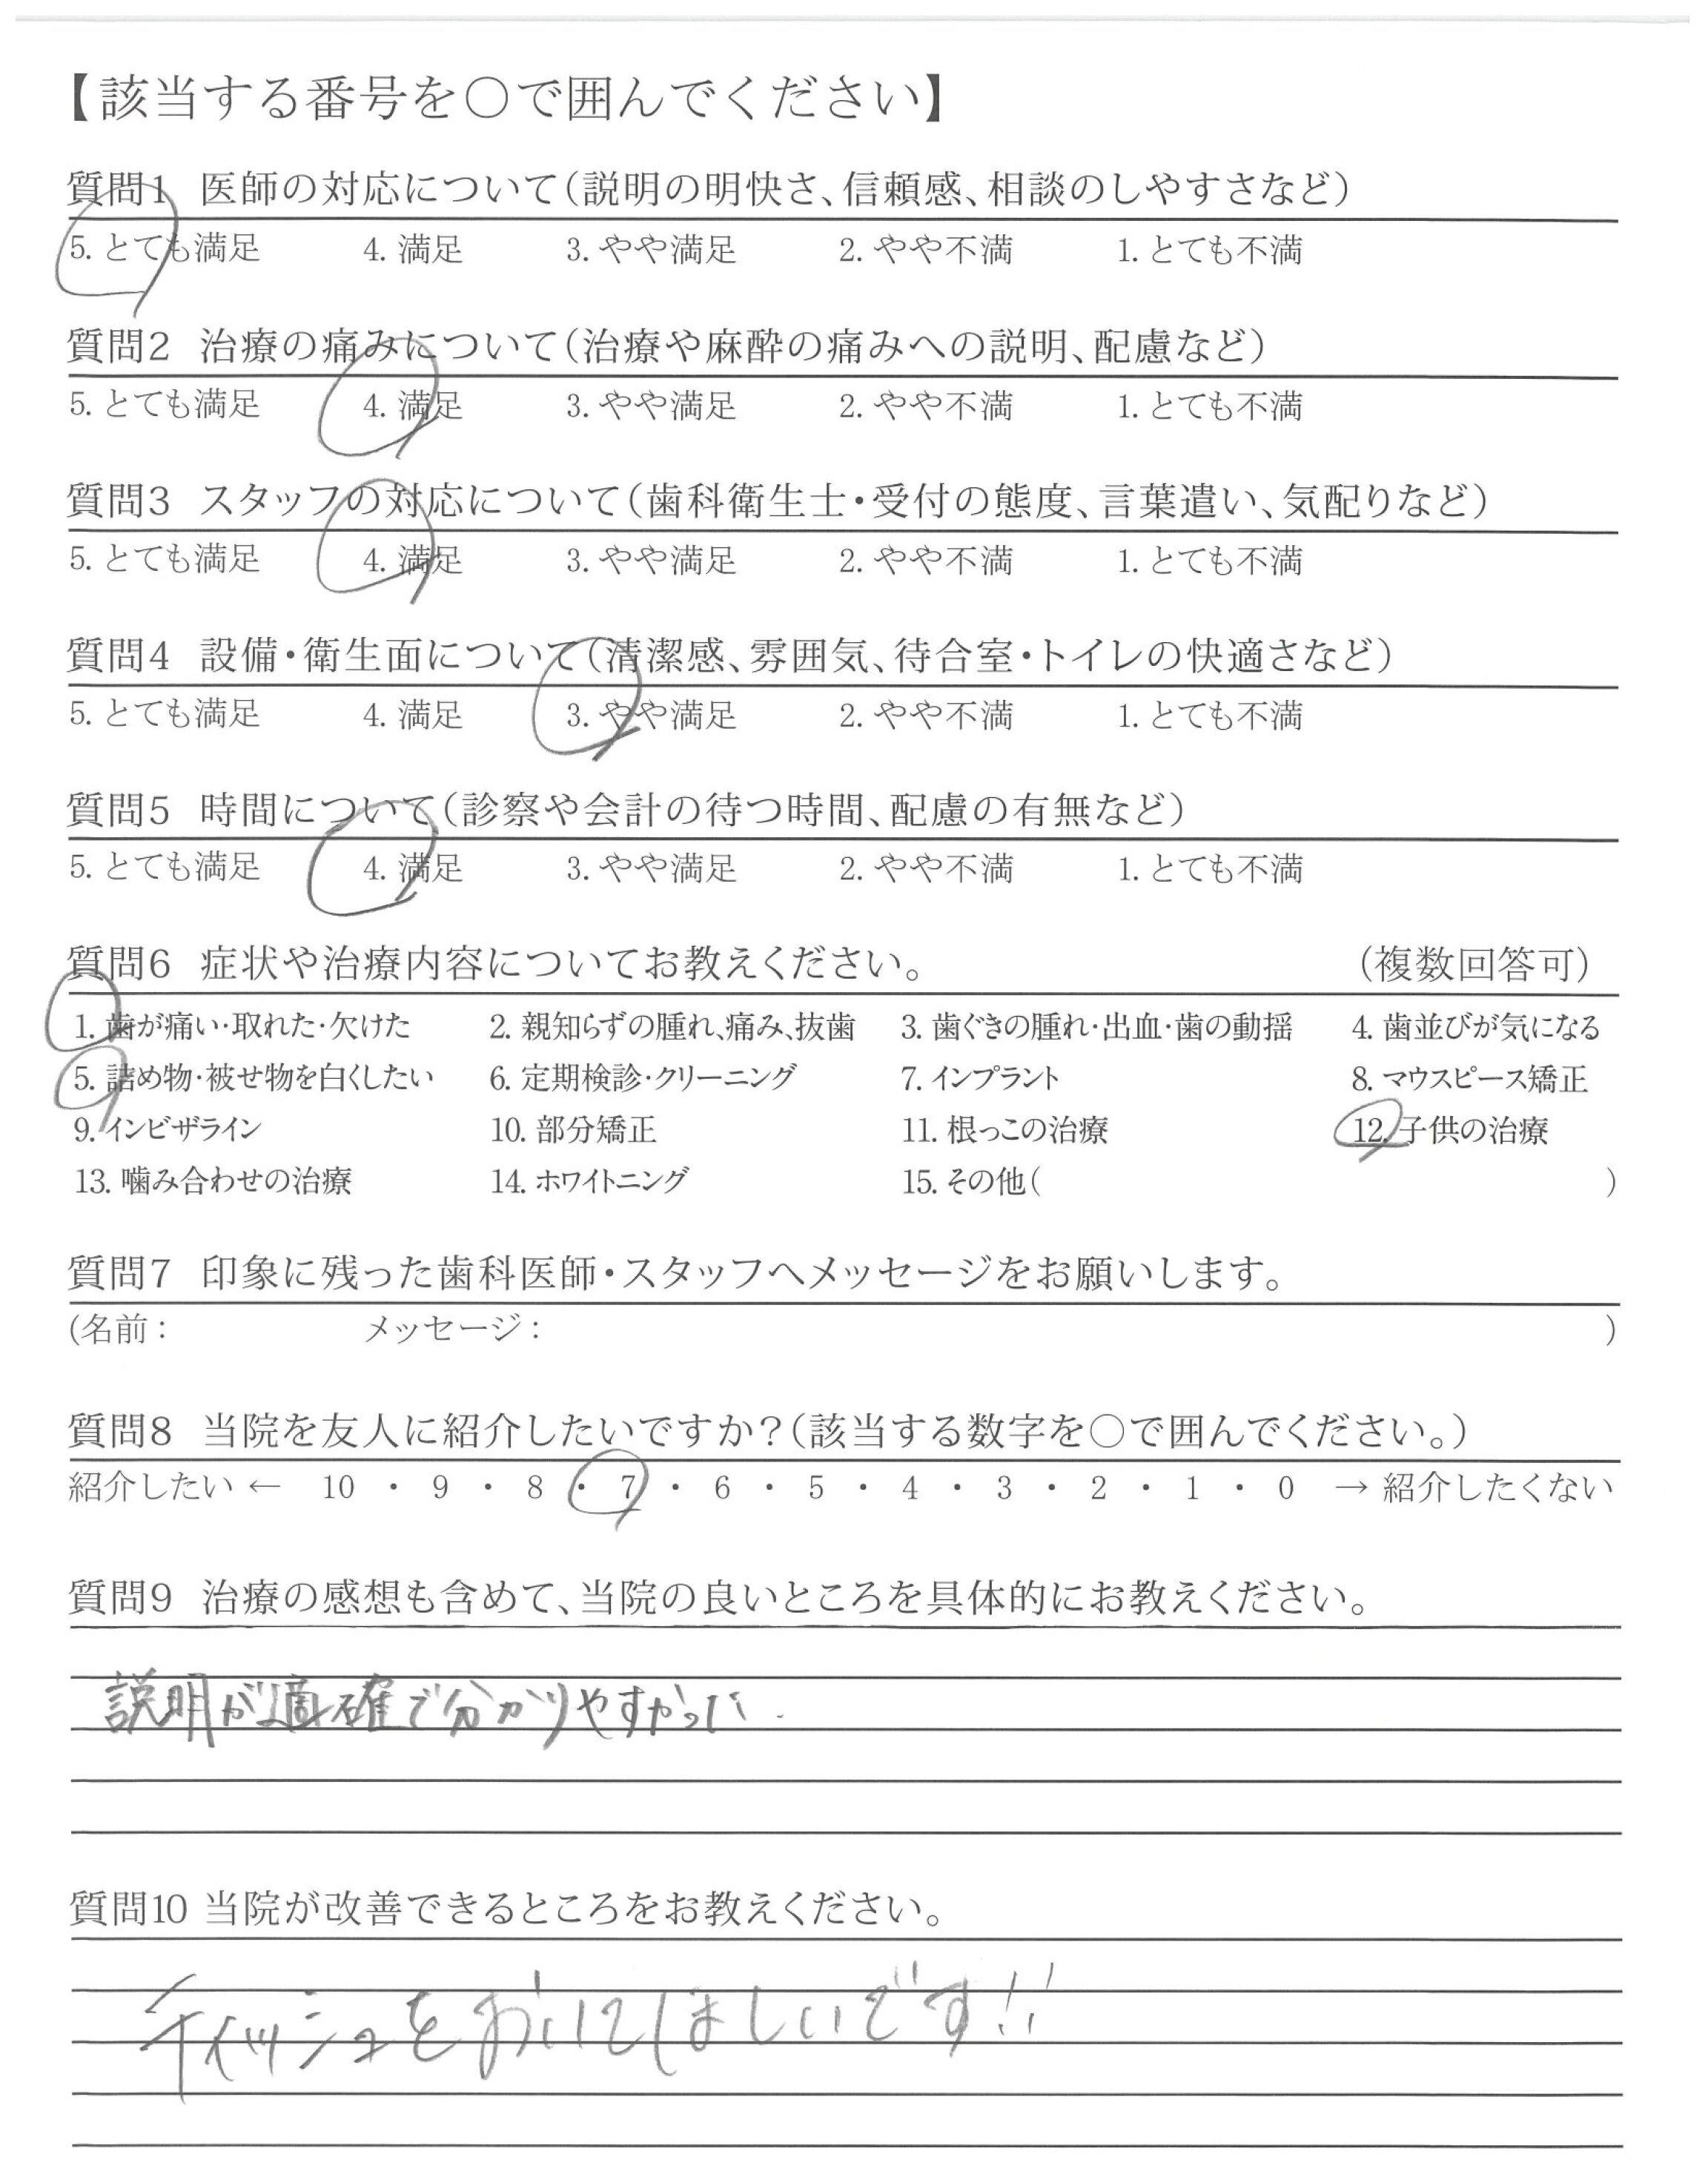 【該当する番号を○で囲んでください】
質問1 医師の対応について（説明の明快さ、信頼感、相談のしやすさなど）
5. とても満足 4. 満足 3. やや満足 2. やや不満 1. とても不満
質問2 治療の痛みについて（治療や麻酔の痛みへの説明、配慮など）
5. とても満足 4. 満足 3. やや満足 2. やや不満 1. とても不満
質問3 スタッフの対応について（歯科衛生士・受付の態度、言葉遣い、気配りなど）
5. とても満足 4. 満足 3. やや満足 2. やや不満 1. とても不満
質問4 設備・衛生面について（清潔感、雰囲気、待合室・トイレの快適さなど）
5. とても満足 4. 満足 3. やや満足 2. やや不満 1. とても不満
質問5 時間について（診察や会計の待つ時間、配慮の有無など）
5. とても満足 4. 満足 3. やや満足 2. やや不満 1. とても不満
質問6 症状や治療内容についてお教えください。 （複数回答可）
1. 歯が痛い・取れた・欠けた 2. 親知らずの腫れ、痛み、抜歯 3. 歯ぐきの腫れ・出血・歯の動揺 4. 歯並びが気になる
5. 詰め物・被せ物を白くしたい 6. 定期検診・クリーニング 7. インプラント 8. マウスピース矯正
9. インビザライン 10. 部分矯正 11. 根っこの治療 12. 子供の治療
13. 噛み合わせの治療 14. ホワイトニング 15. その他（ ）
質問7 印象に残った歯科医師・スタッフへメッセージをお願いします。
(名前： メッセージ： )
質問8 当院を友人に紹介したいですか？（該当する数字を○で囲んでください。）
紹介したい ← 10 ・ 9 ・ 8 ・ 7 ・ 6 ・ 5 ・ 4 ・ 3 ・ 2 ・ 1 ・ 0 → 紹介したくない
質問9 治療の感想も含めて、当院の良いところを具体的にお教えください。
説明が適確で分かりやすかった.
質問10 当院が改善できるところをお教えください。
ティッシュをおいてほしいです!!